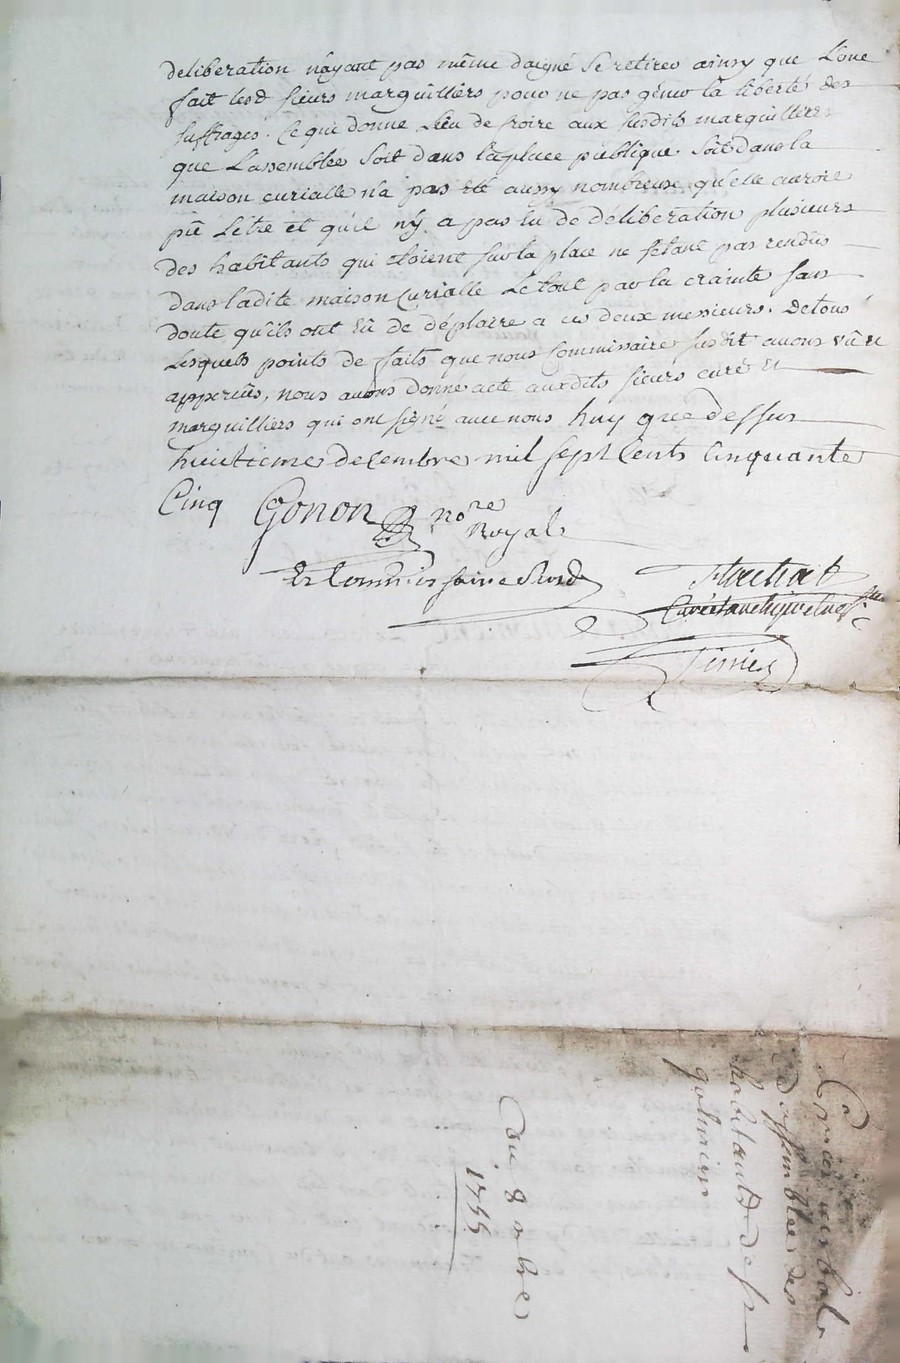 deliberation n'ayant pas même daigné se retirer ainsy que L'one
fait lesd sieurs marguilliers pour ne pas gêner la liberté des
suffrages. Ce qui donne lieu de croire aux susdits marguilliers
que L'assemblée soit dans la place publique. soit dans la
maison curialle n'a pas été aussy nombreuse qu'elle auroit
pû L'etre et qu'il n'y a pas eû de déliberation plusieurs
des habitants qui etoient sur la place ne s'etant pas rendus
dans ladite maison Curialle Le tout par la crainte sans
doute qu'ils ont Eû de déplaire a ces deux messieurs. De tous
Lesquels points de faits que nous Commissaire susdit avons vû et
apperçûs, nous avons donné acte auxdits sieurs curé et
marguilliers qui ont signé avec nous huy que dessus
huitieme decembre mil sept Cents Cinquante
Cinq Gonon nore
Royal
Et Commissaire Susd
Flachat
Curé
Periers
Copie verbal
d'assemblée des
habitants de St
Du 8 xbre
1755